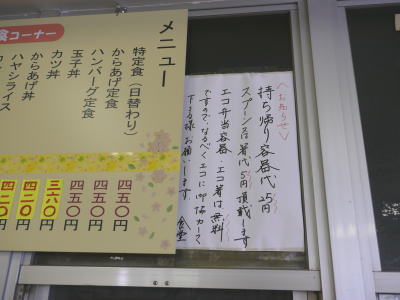 メニュー
食コーナー
特定食（日替わり）
からあげ定食
ハンバーグ定食
玉子丼
カツ丼
からあげ丼
ハヤシライス
四五〇円
四五〇円
四五〇円
三六〇円
四二〇円
四二〇円
〈お知らせ〉
持ち帰り容器代25円
スプーン及箸代5円頂戴します
エコ弁当容器・エコ箸は無料
ですので、なるべくエコに御協力して
下さる様お願いします。食堂